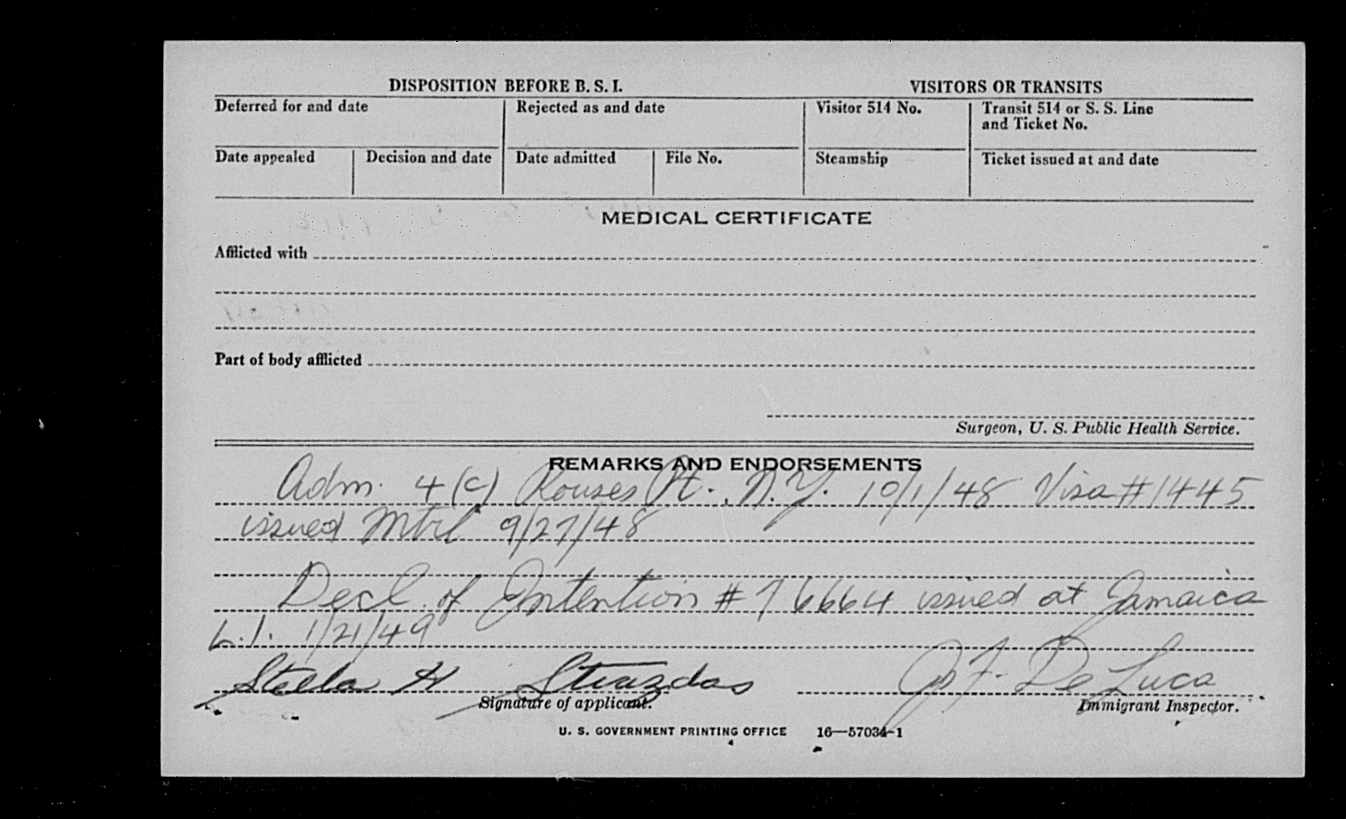 DISPOSITION BEFORE B. S. I. VISITORS OR TRANSITS
Deferred for and date Rejected as and date Visitor 514 No. Transit 514 or S. S. Line
and Ticket No.
Date appealed Decision and date Date admitted File No. Steamship Ticket issued at and date
MEDICAL CERTIFICATE
Afflicted with
Part of body afflicted
Surgeon, U. S. Public Health Service.
REMARKS AND ENDORSEMENTS
Adm. 4(c) Rouses Pt., N.Y. 10/1/48 Visa #1445
issued Mtrl 9/27/48
Decl. of Intention # 76664 issued at Jamaica
L.I. 1/21/49
Stella H Strazdas De Luca
Signature of applicant. Immigrant Inspector.
U. S. GOVERNMENT PRINTING OFFICE 16—57034-1